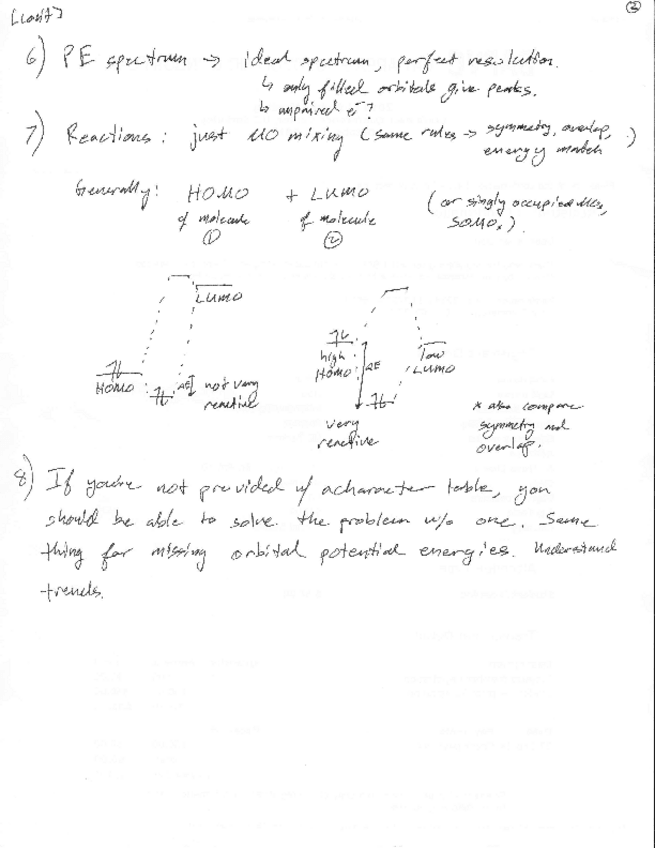 [cont]
2
6) PE spectrum → ideal spectrum, perfect resolution.
↳ only filled orbitals give peaks.
↳ unpaired e⁻?
7) Reactions: just MO mixing (same rules → symmetry, overlap, energy match)
Generally: HOMO + LUMO (or singly occupied MOs,
of molecule of molecule SOMOs).
① ②
LUMO
HOMO
ΔE not very
reactive
high
HOMO
low
LUMO
ΔE
very
reactive
* also compare
symmetry and
overlap.
8) If you're not provided w/ a character table, you
should be able to solve the problem w/o one. Same
thing for missing orbital potential energies. Understand
trends.